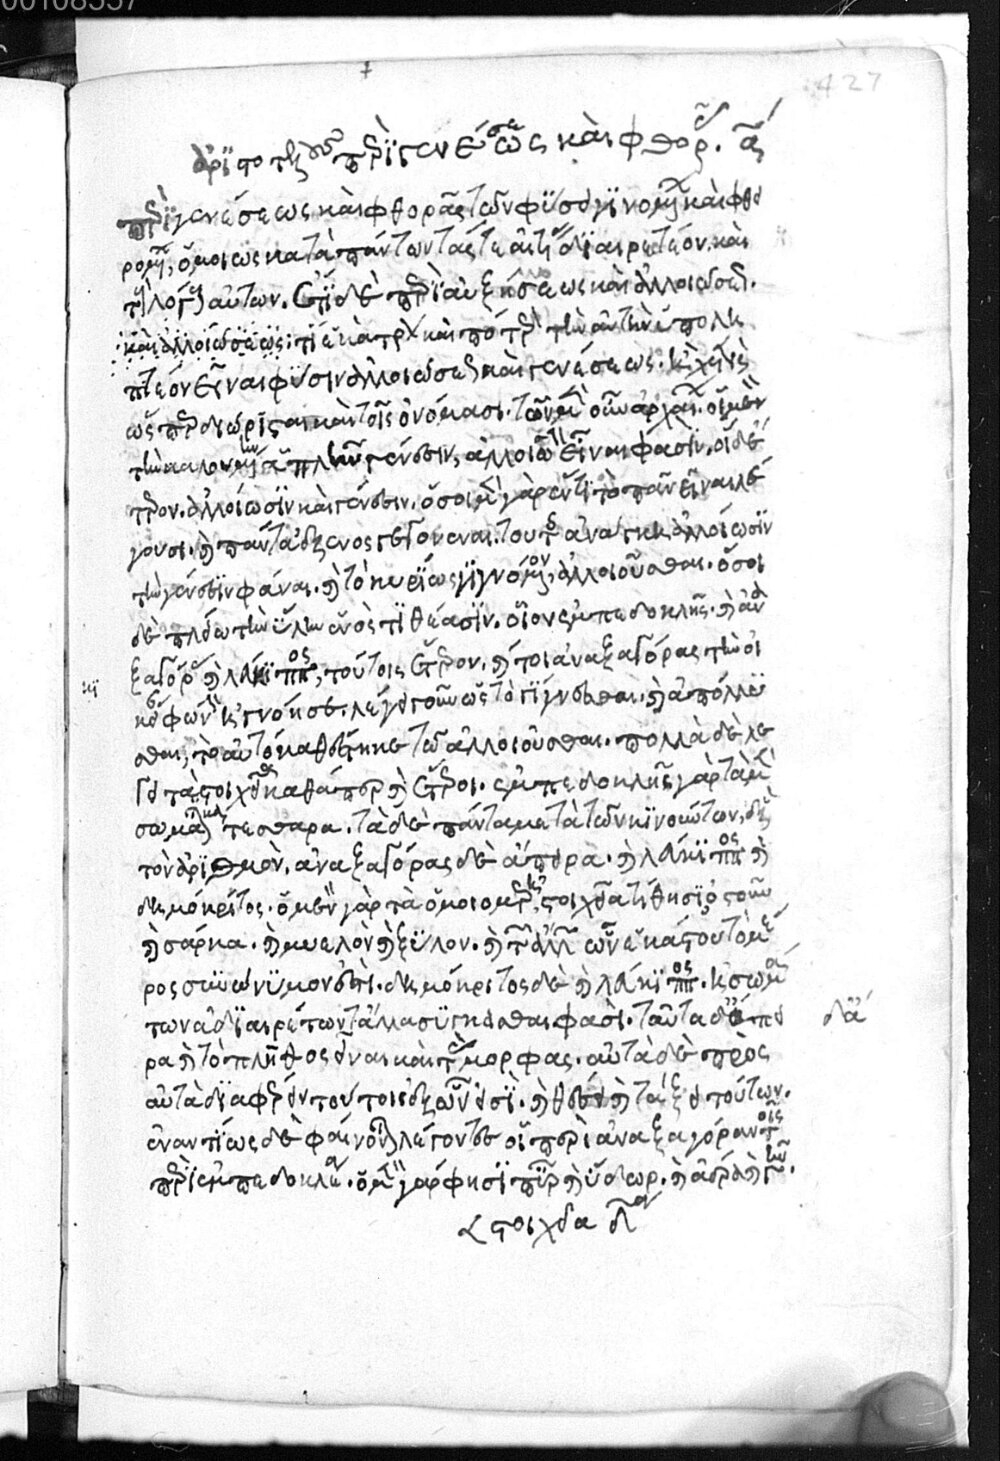 00108557
427
ἀριστοτέλους περὶ γενέσεως καὶ φθορᾶς. α
περὶ γενέσεως καὶ φθορᾶς τῶν φύσει γινομένων καὶ φθει
ρομένων, ὁμοίως κατὰ πάντων τάς τε αἰτίας διαιρετέον. καὶ
τοὺς λόγους αὐτῶν. ἔτι δὲ περὶ αὐξήσεως καὶ ἀλλοιώσεως.
καὶ ἀλλοιώσεως: τί ἑκάτερον καὶ πότερον τὴν αὐτὴν ὑπολη
πτέον εἶναι φύσιν ἀλλοιώσεως καὶ γενέσεως. ἢ χωρὶς
ὡς διώρισται καὶ τοῖς ὀνόμασι. τῶν μὲν οὖν ἀρχαίων. οἱ μὲν
τὴν καλουμένην ἁπλῆν γένεσιν, ἀλλοίωσιν εἶναι φασίν, οἱ δὲ
ἕτερον ἀλλοίωσιν καὶ γένεσιν. ὅσοι μὲν γὰρ ἕν τι τὸ πᾶν εἶναι λέ
γουσι. καὶ πάντα ἐξ ἑνὸς γεννῶσι, τούτοις ἀνάγκη ἀλλοίωσιν
τὴν γένεσιν φάναι. καὶ τὸ κυρίως γιγνόμενον, ἀλλοιοῦσθαι. ὅσοι
δὲ πλείω τὴν ὕλην ἑνὸς τιθέασιν. οἷον ἐμπεδοκλῆς. καὶ ἀνα
ξαγόρας καὶ λεύκιππος, τούτοις ἕτερον. καίτοι ἀναξαγόρας τὴν οἰ
κείαν φωνὴν ἠγνόησε. λέγει γοῦν ὡς τὸ γίγνεσθαι. καὶ ἀπόλλυ
σθαι, τὸ αὐτὸ καθέστηκε τῷ ἀλλοιοῦσθαι. πολλὰ δὲ λέ
γει τὰ στοιχεῖα καθάπερ καὶ ἕτεροι. ἐμπεδοκλῆς γὰρ τὰ μὲν
σωματικὰ τέσσαρα. τὰ δὲ πάντα μετὰ τῶν κινούντων, ἓξ
τὸν ἀριθμόν. ἀναξαγόρας δὲ ἄπειρα. καὶ λεύκιππος καὶ
δημόκριτος. ὁ μὲν γὰρ τὰ ὁμοιομερῆ στοιχεῖα τίθησιν οἷον ὀστοῦν
καὶ σάρκα. καὶ μυελὸν καὶ ξύλον. καὶ τῶν ἄλλων ὧν ἑκάστου τὸ μέ
ρος συνώνυμον ἐστί. δημόκριτος δὲ καὶ λεύκιππος. ἐκ σωμά
των ἀδιαιρέτων τἄλλα συγκεῖσθαι φασί. ταῦτα δ' ἄπει
ρα καὶ τὸ πλῆθος εἶναι καὶ τὰς μορφάς. αὐτὰ δὲ πρὸς
αὐτὰ διαφέρειν τούτοις ἐξ ὧν εἰσὶ. καὶ θέσει καὶ τάξει τούτων.
ἐναντίως δὲ φαίνονται λέγοντες οἱ περὶ ἀναξαγόραν τοῖς
περὶ ἐμπεδοκλέα. ὁ μὲν γάρ φησι πῦρ καὶ ὕδωρ. καὶ ἀέρα καὶ γῆν.
στοιχεῖα δ